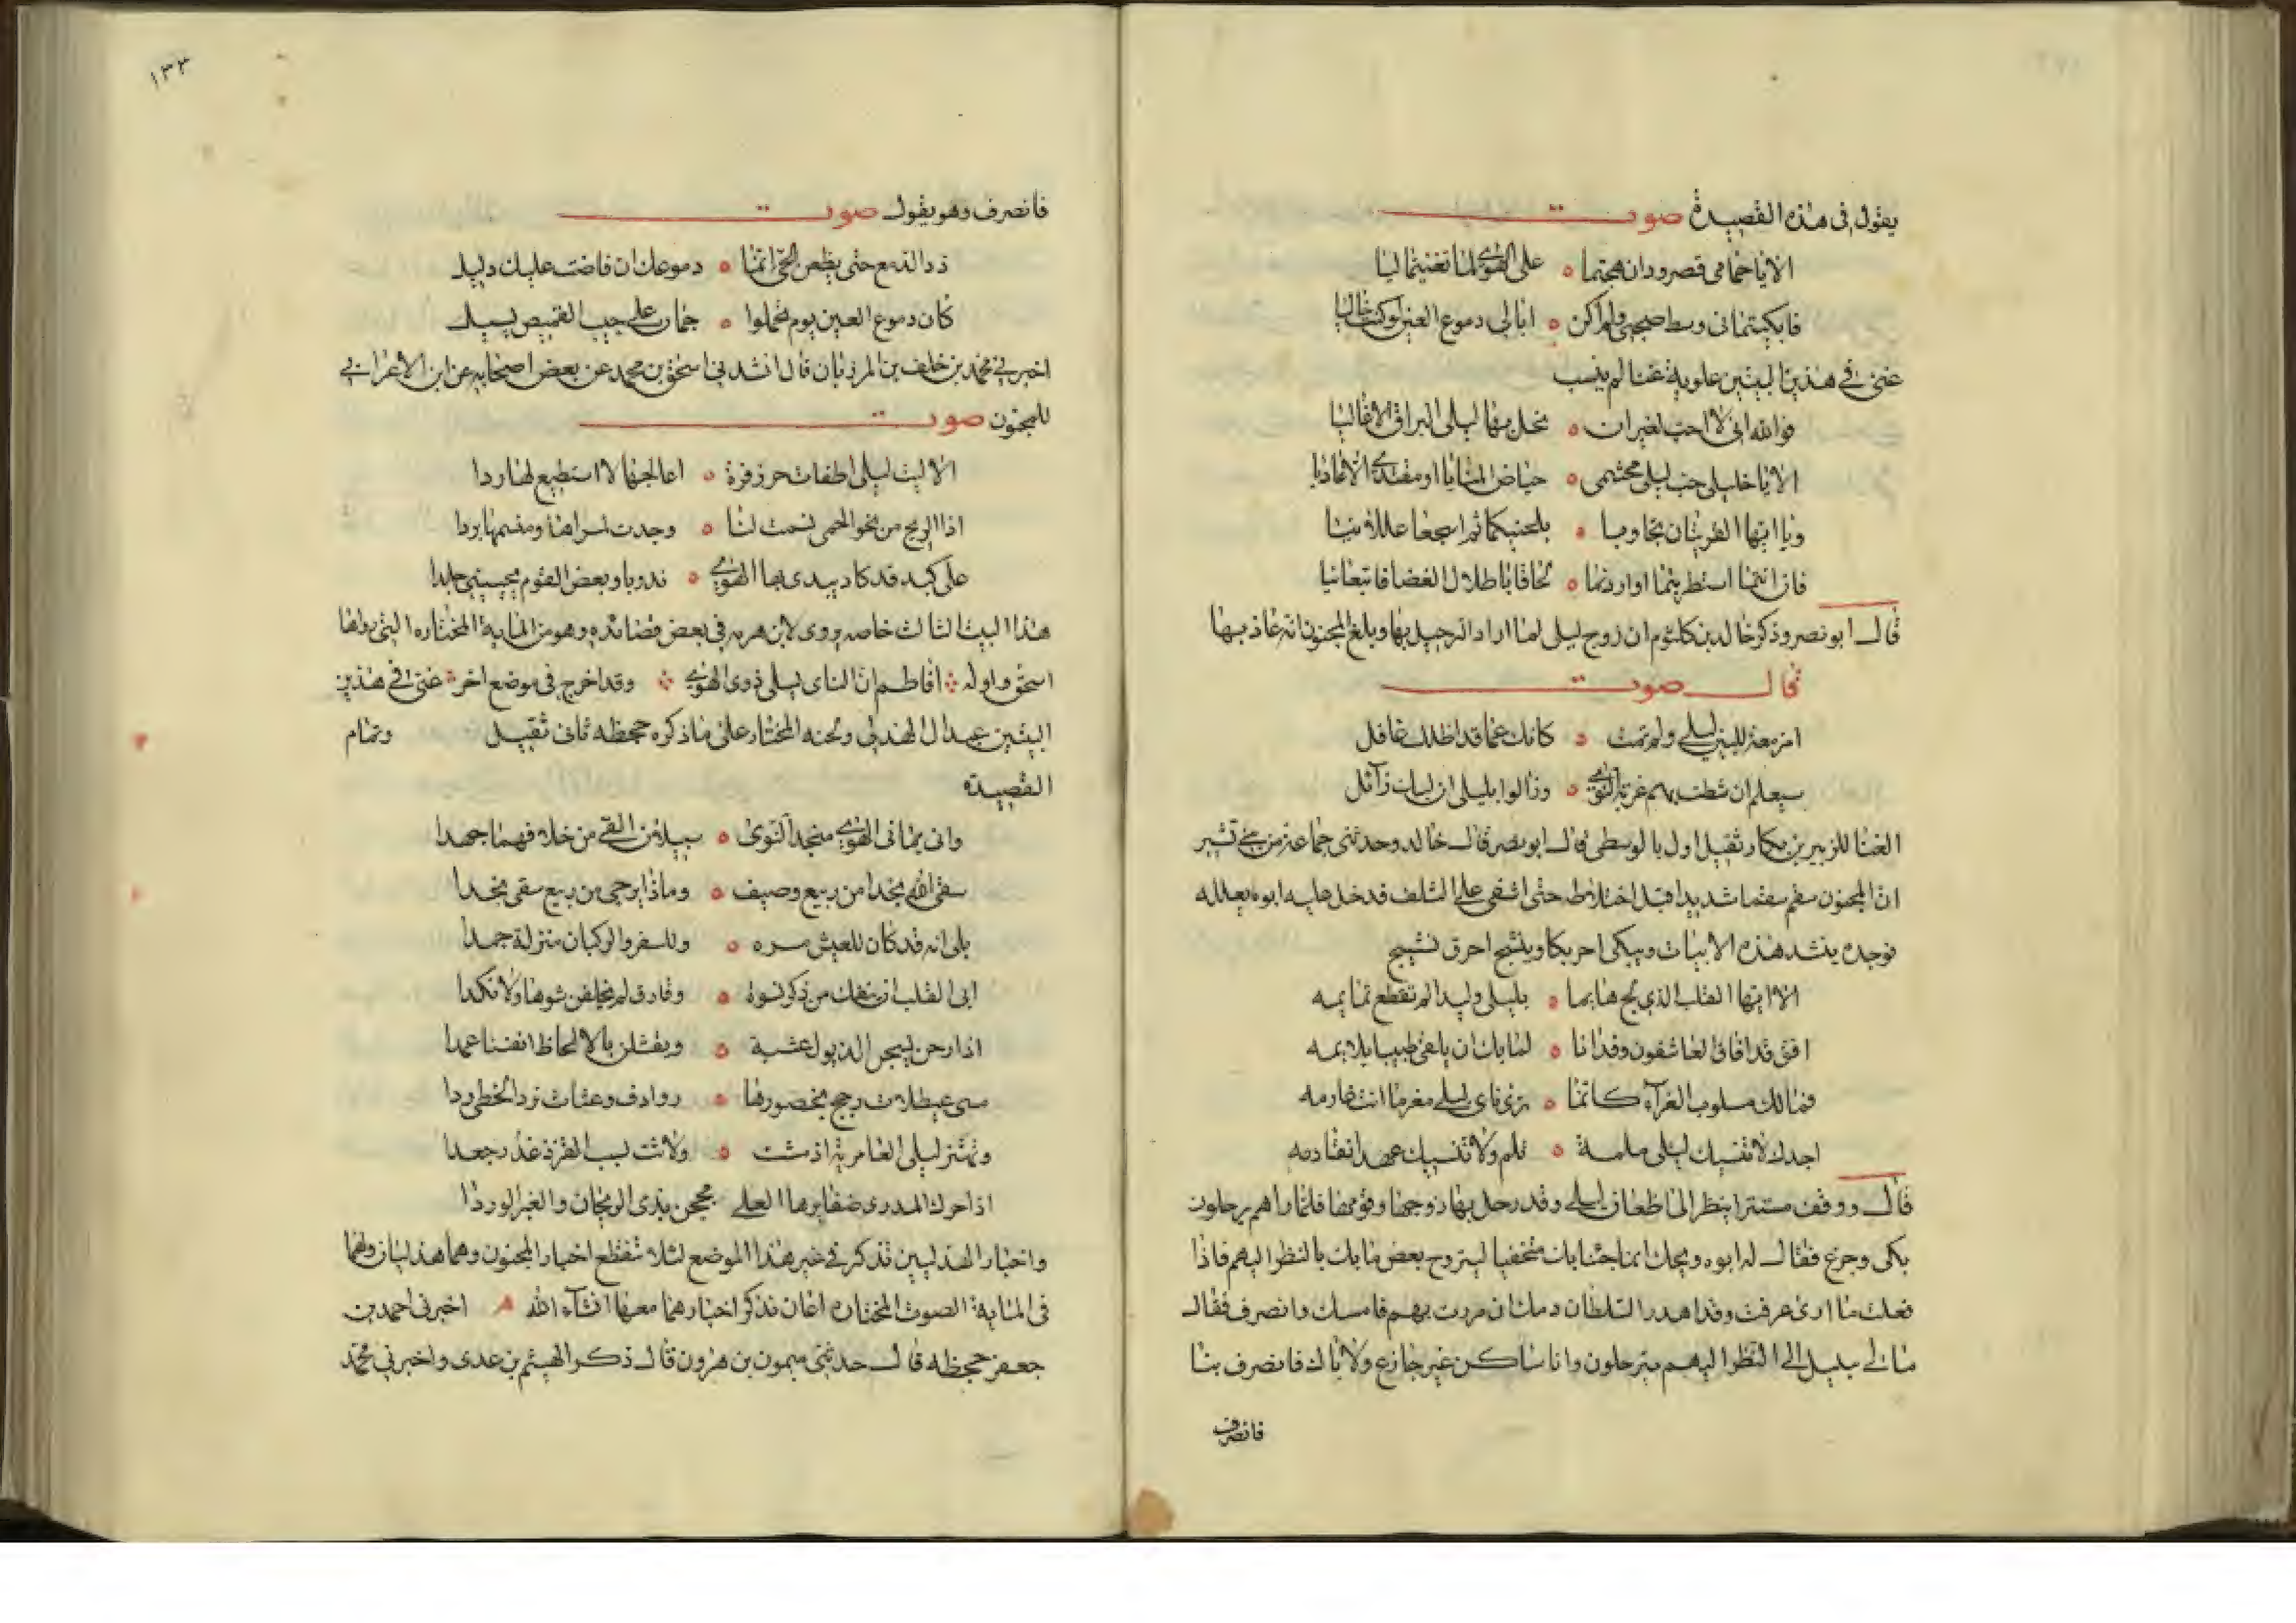 يقول في هذه القصيدة صوت
الا يا حمامى قصر ودان هجتما ه على الهوى لما تغنيتما ليا
فابكيتمانى وسط صحبى ولم اكن ه ابالى دموع العين لو كنت خاليا
غنى في هذين البيتين علوية غنا لم ينسب
فوالله انى لا احب لغير ان ه تحل بها ليلى البراق الاعاليا
الا يا خليلى حب ليلى مجشمى ه حياض المنايا او مقيدى الاعاديا
ويا ايها القمريتان تجاوبا ه بلحنيكما ثم اسجعا عللانيا
فان انتما استطربتما او اردتما ه لحاقا باطلال الغضا فاتبعانيا
قال ابو نصر وذكر خالد بن كلثوم ان زوج ليلى لما اراد الرحيل بها وبلغ المجنون انه غاد بها
قال صوت
امزمعة للبين ليلى ولم تمت ه كانك عما قد اظلك غافل
سيعلم ان شطت بهم غربة النوى ه وزالوا بليلى ان لبك زائل
الغنا للزبير بن دحمان ثقيل اول بالوسطى قال ابو نصر قال خالد وحدثنى جماعة من بنى قشير
ان المجنون سقم سقما شديدا قبل اختلاطه حتى اشفى على التلف فدخل عليه ابوه يعلله
فوجده ينشد هذه الابيات ويبكى احر بكا وينشج احرق نشيج
الا ايها القلب الذى لج هايما ه بليلى وليدا لم تقطع تمايمه
افق قد افاق العاشقون وقد انا ه لما بك ان يلقى طبيبا يلايمه
فمالك مسلوب العزآء كانما ه ترى ناى ليلى مغرما انت غارمه
اجدك لا تنسيك ليلى ملمة ه تلم ولا تنسيك عهدا تقادمه
قال ووقف مستترا ينظر الى اظعان ليلى وقد رحل بها زوجها وقومها فلما راهم يرحلون
بكى وجزع فقال له ابوه ويحك انما جئنا بك متخفيا ليتروح بعض ما بك بالنظر اليهم فاذا
فعلت ما ارى عرفت وقد اهدر السلطان دمك ان مررت بهم فامسك وانصرف فقال
مالى سبيل الى النظر اليهم يترحلون وانا ساكن غير جازع ولا باك فانصرف بنا
فانصرف
١٣٣
فانصرف وهو يقول صوت
ذد الدمع حتى يظعن الحى انما ه دموعك ان فاضت عليك دليل
كان دموع العين يوم تحملوا ه جمان على جيب القميص يسيل
اخبرنى محمد بن خلف بن المرزبان قال انشدنى اسحق بن محمد عن بعض اصحابه عن ابن الاعرابى
للمجنون صوت
الا ليت ليلى اطفات حر زفرة ه اعالجها لا استطيع لها ردا
اذا الريح من نحو الحمى نسمت لنا ه وجدت لمسراها ومنسمها بردا
على كبد قد كاد يبدى بها الهوى ه ندوبا وبعض القوم يحسبنى جلدا
هذا البيت الثالث خاصه يروى لابن هرمه في بعض قصائده وهو من المايه المختاره التى رواها
اسحق واوله افاطم ان الناى يسلى ذوى الهوى وقد اخرج فى موضع اخر غنى في هذين
البيتين عبد ال الهذلى ولحنه المختار على ما ذكره جحظه ثانى ثقيل وتمام
القصيدة
وانى يمانى الهوى منجد النوى ه سبيلان القى من خلافهما جهدا
سقى الله نجدا من ربيع وصيف ه وماذا يرجى من ربيع سقى نجدا
بلى انه قد كان للعيش مره ه وللسفر والركبان منزلة حمدا
ابى القلب ان ينفك من ذكر نسوة ه وقارق لم يخلقن شوها ولا نكدا
اذا رحن يسحبن الذيول عشية ه ويقتلن بالالحاظ انفسنا عمدا
مشى عيطلات رجح بخصورها ه روادف وعثات ترد الخطى ردا
وتهتز ليلى العامرية اذ مشت ه ولاثت لسب القز ذ غدر جعدا
اذا حرك المدرى ضفايرها العلى مججن بندى الريحان والعنبر الوردا
واخبار الهذليين تذكر في غير هذا الموضع لئلا تنقطع اخبار المجنون وهما هذليان ولهما
فى المايه الصوت المختاره اغان تذكر اخبارهما معها انشاء الله اخبرنى احمد بن
جعفر جحظه قال حدثنى ميمون بن هرون قال ذكر الهيثم بن عدى واخبرنى محمد